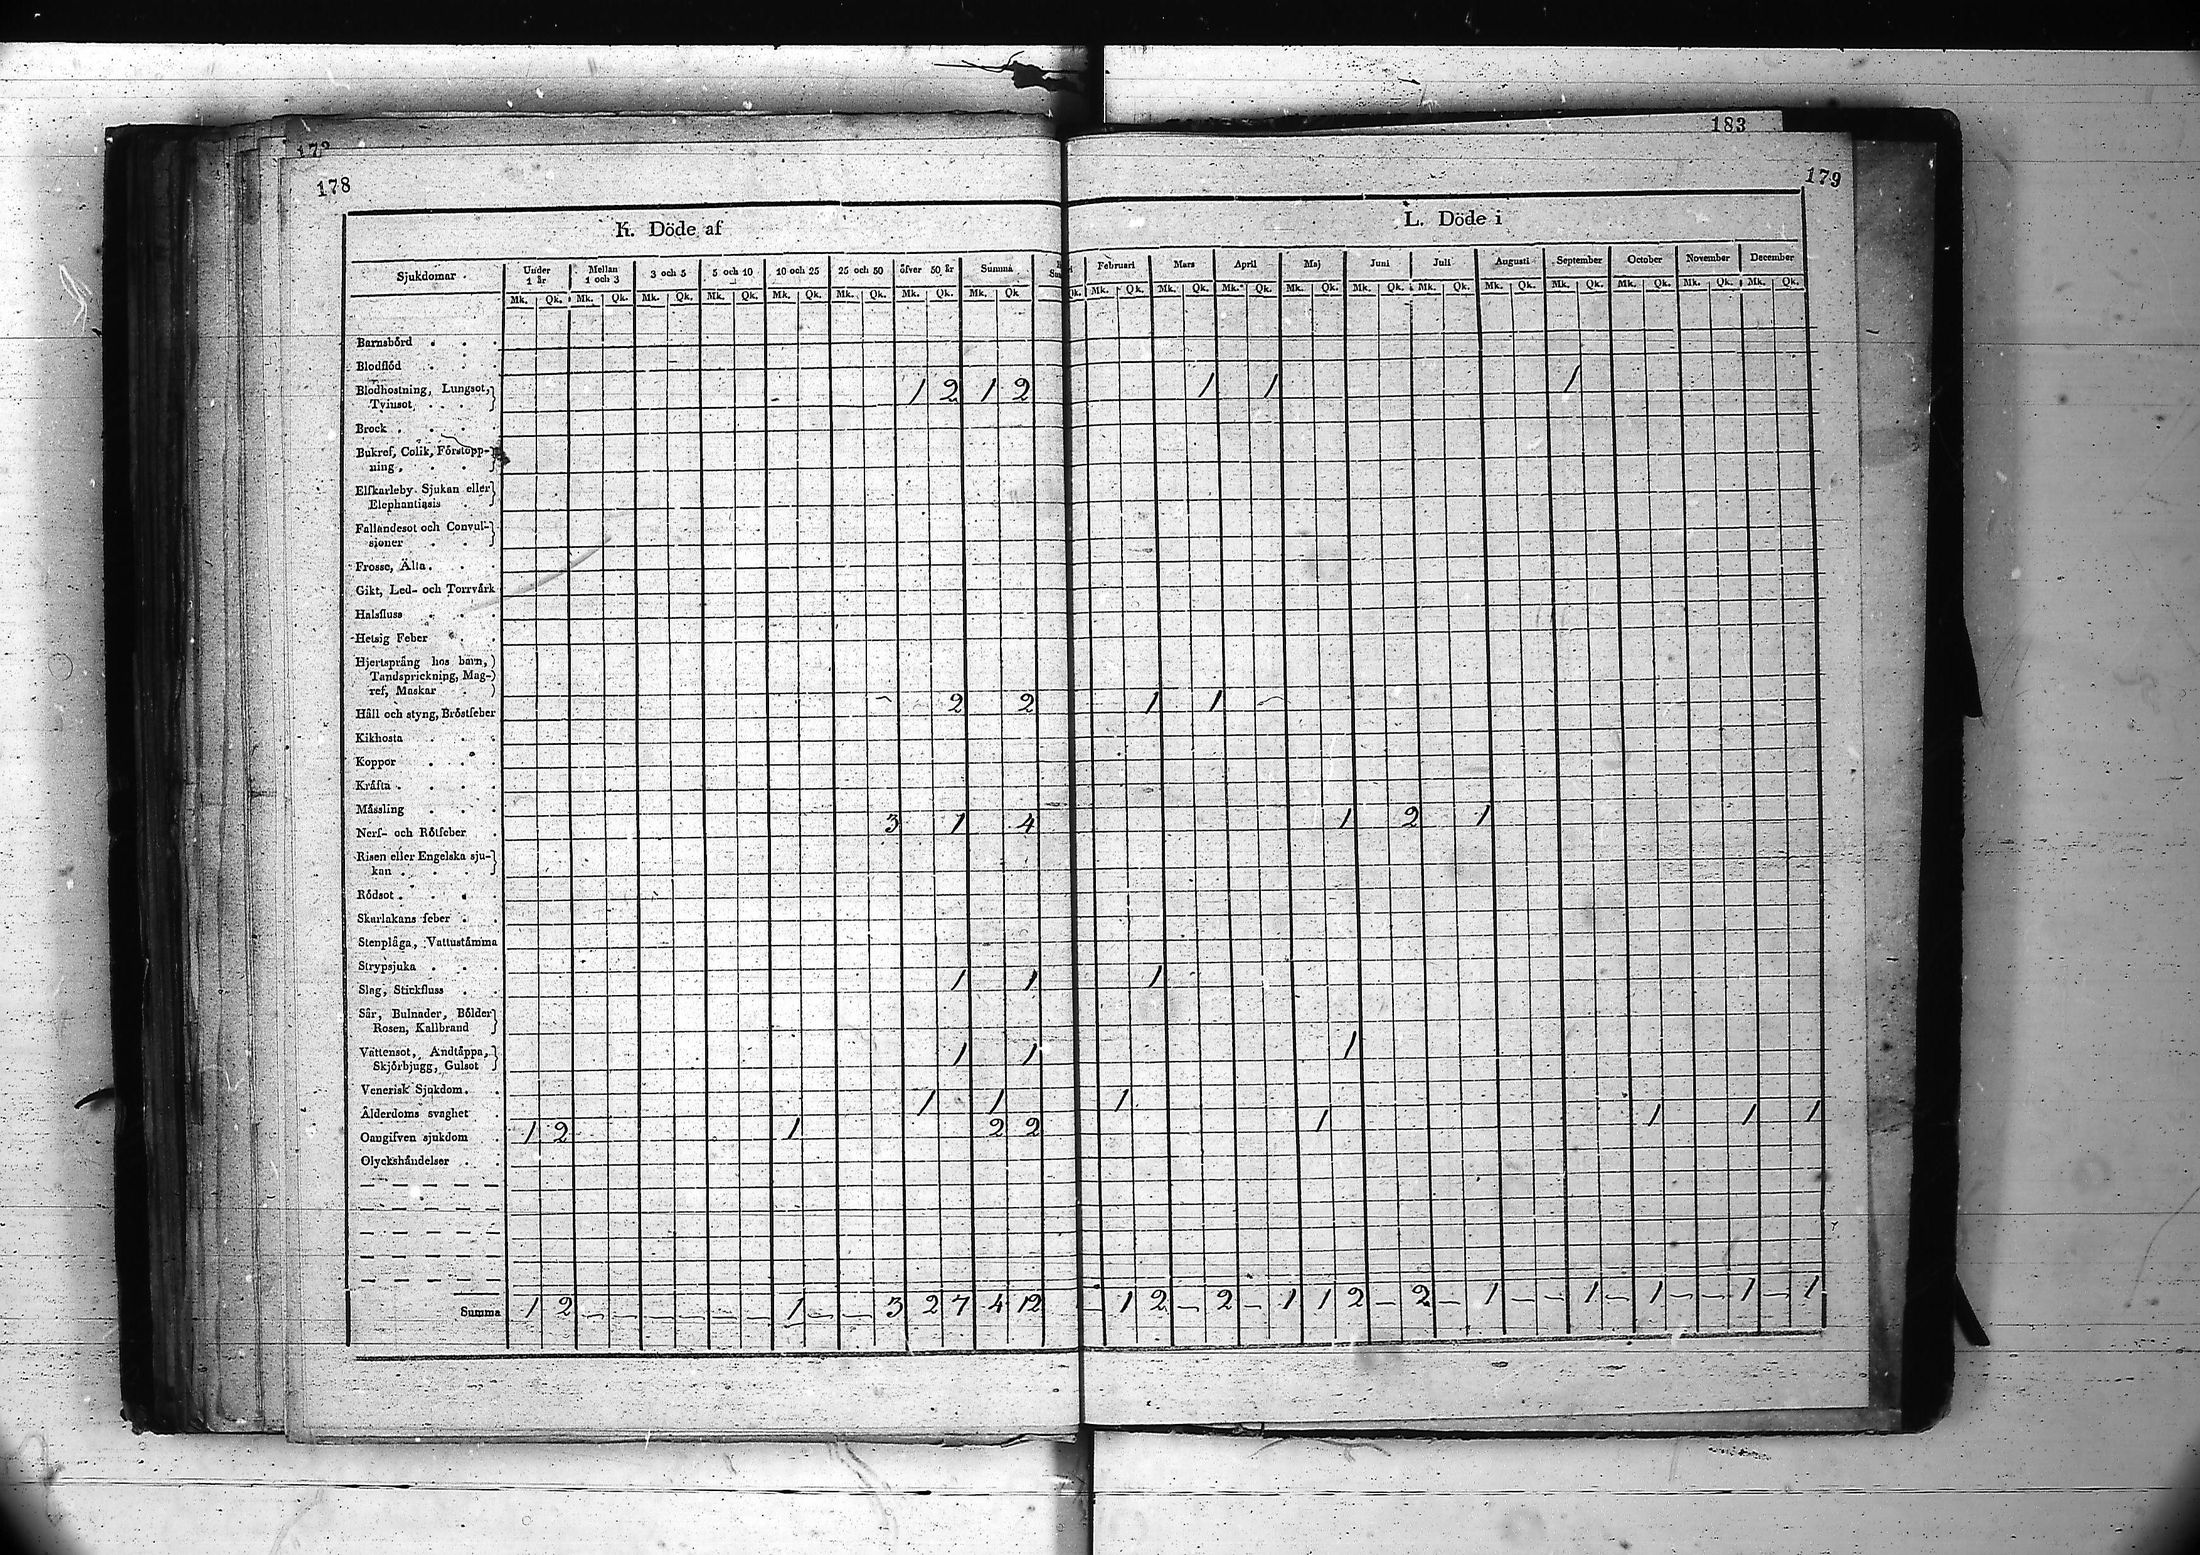 172
183
178
179
K. Döde af
L. Döde i
Sjukdomar . Under 1 år Mellan 1 och 3 3 och 5 5 och 10 10 och 25 25 och 50 öfver 50 år Summa Februari Mars April Maj Juni Juli Augusti September October November December
Mk. Qk. Mk. Qk. Mk. Qk. Mk. Qk. Mk. Qk. Mk. Qk. Mk. Qk. Mk. Qk Qk. Mk. Qk. Mk. Qk. Mk. Qk. Mk. Qk. Mk. Qk. Mk. Qk. Mk. Qk. Mk. Qk. Mk. Qk. Mk. Qk. Mk. Qk.
Barnsbörd . . .
Blodflöd . . .
Blodhostning, Lungsot,
Tvinsot . . . 1 2 1 2 1 1 1
Brock . . . .
Bukref, Colik, Förstopp-
ning . . . .
Elfkarleby Sjukan eller
Elephantiasis .
Fallandesot och Convul-
sioner . . .
Frosse, Älta . . .
Gikt, Led- och Torrvärk
Halsfluss . . .
Hetsig Feber . .
Hjertsprång hos barn,
Tandsprickning, Mag-
ref, Maskar .
Håll och styng, Bröstfeber 2 2 1 1
Kikhosta . . .
Koppor . . .
Kräfta . . . .
Mässling . . .
Nerf- och Rötfeber . 3 1 4 1 2 1
Risen eller Engelska sju-
kan . . . .
Rödsot . . . .
Skarlakans feber . .
Stenplåga, Vattustämma
Strypsjuka . . .
Slag, Stickfluss . . 1 1 1
Sår, Bulnader, Bölder
Rosen, Kallbrand
Vattensot, Andtäppa,
Skjörbjugg, Gulsot 1 1 1
Venerisk Sjukdom . .
Ålderdoms svaghet . 1 1 1
Oangifven sjukdom . 1 2 1 2 2 1 1 1 1
Olyckshändelser . .
Summa 1 2 — — — — — — 1 — — 3 2 7 4 12 — 1 2 — 2 — 1 1 2 — 2 — 1 — — 1 — 1 — — 1 — 1